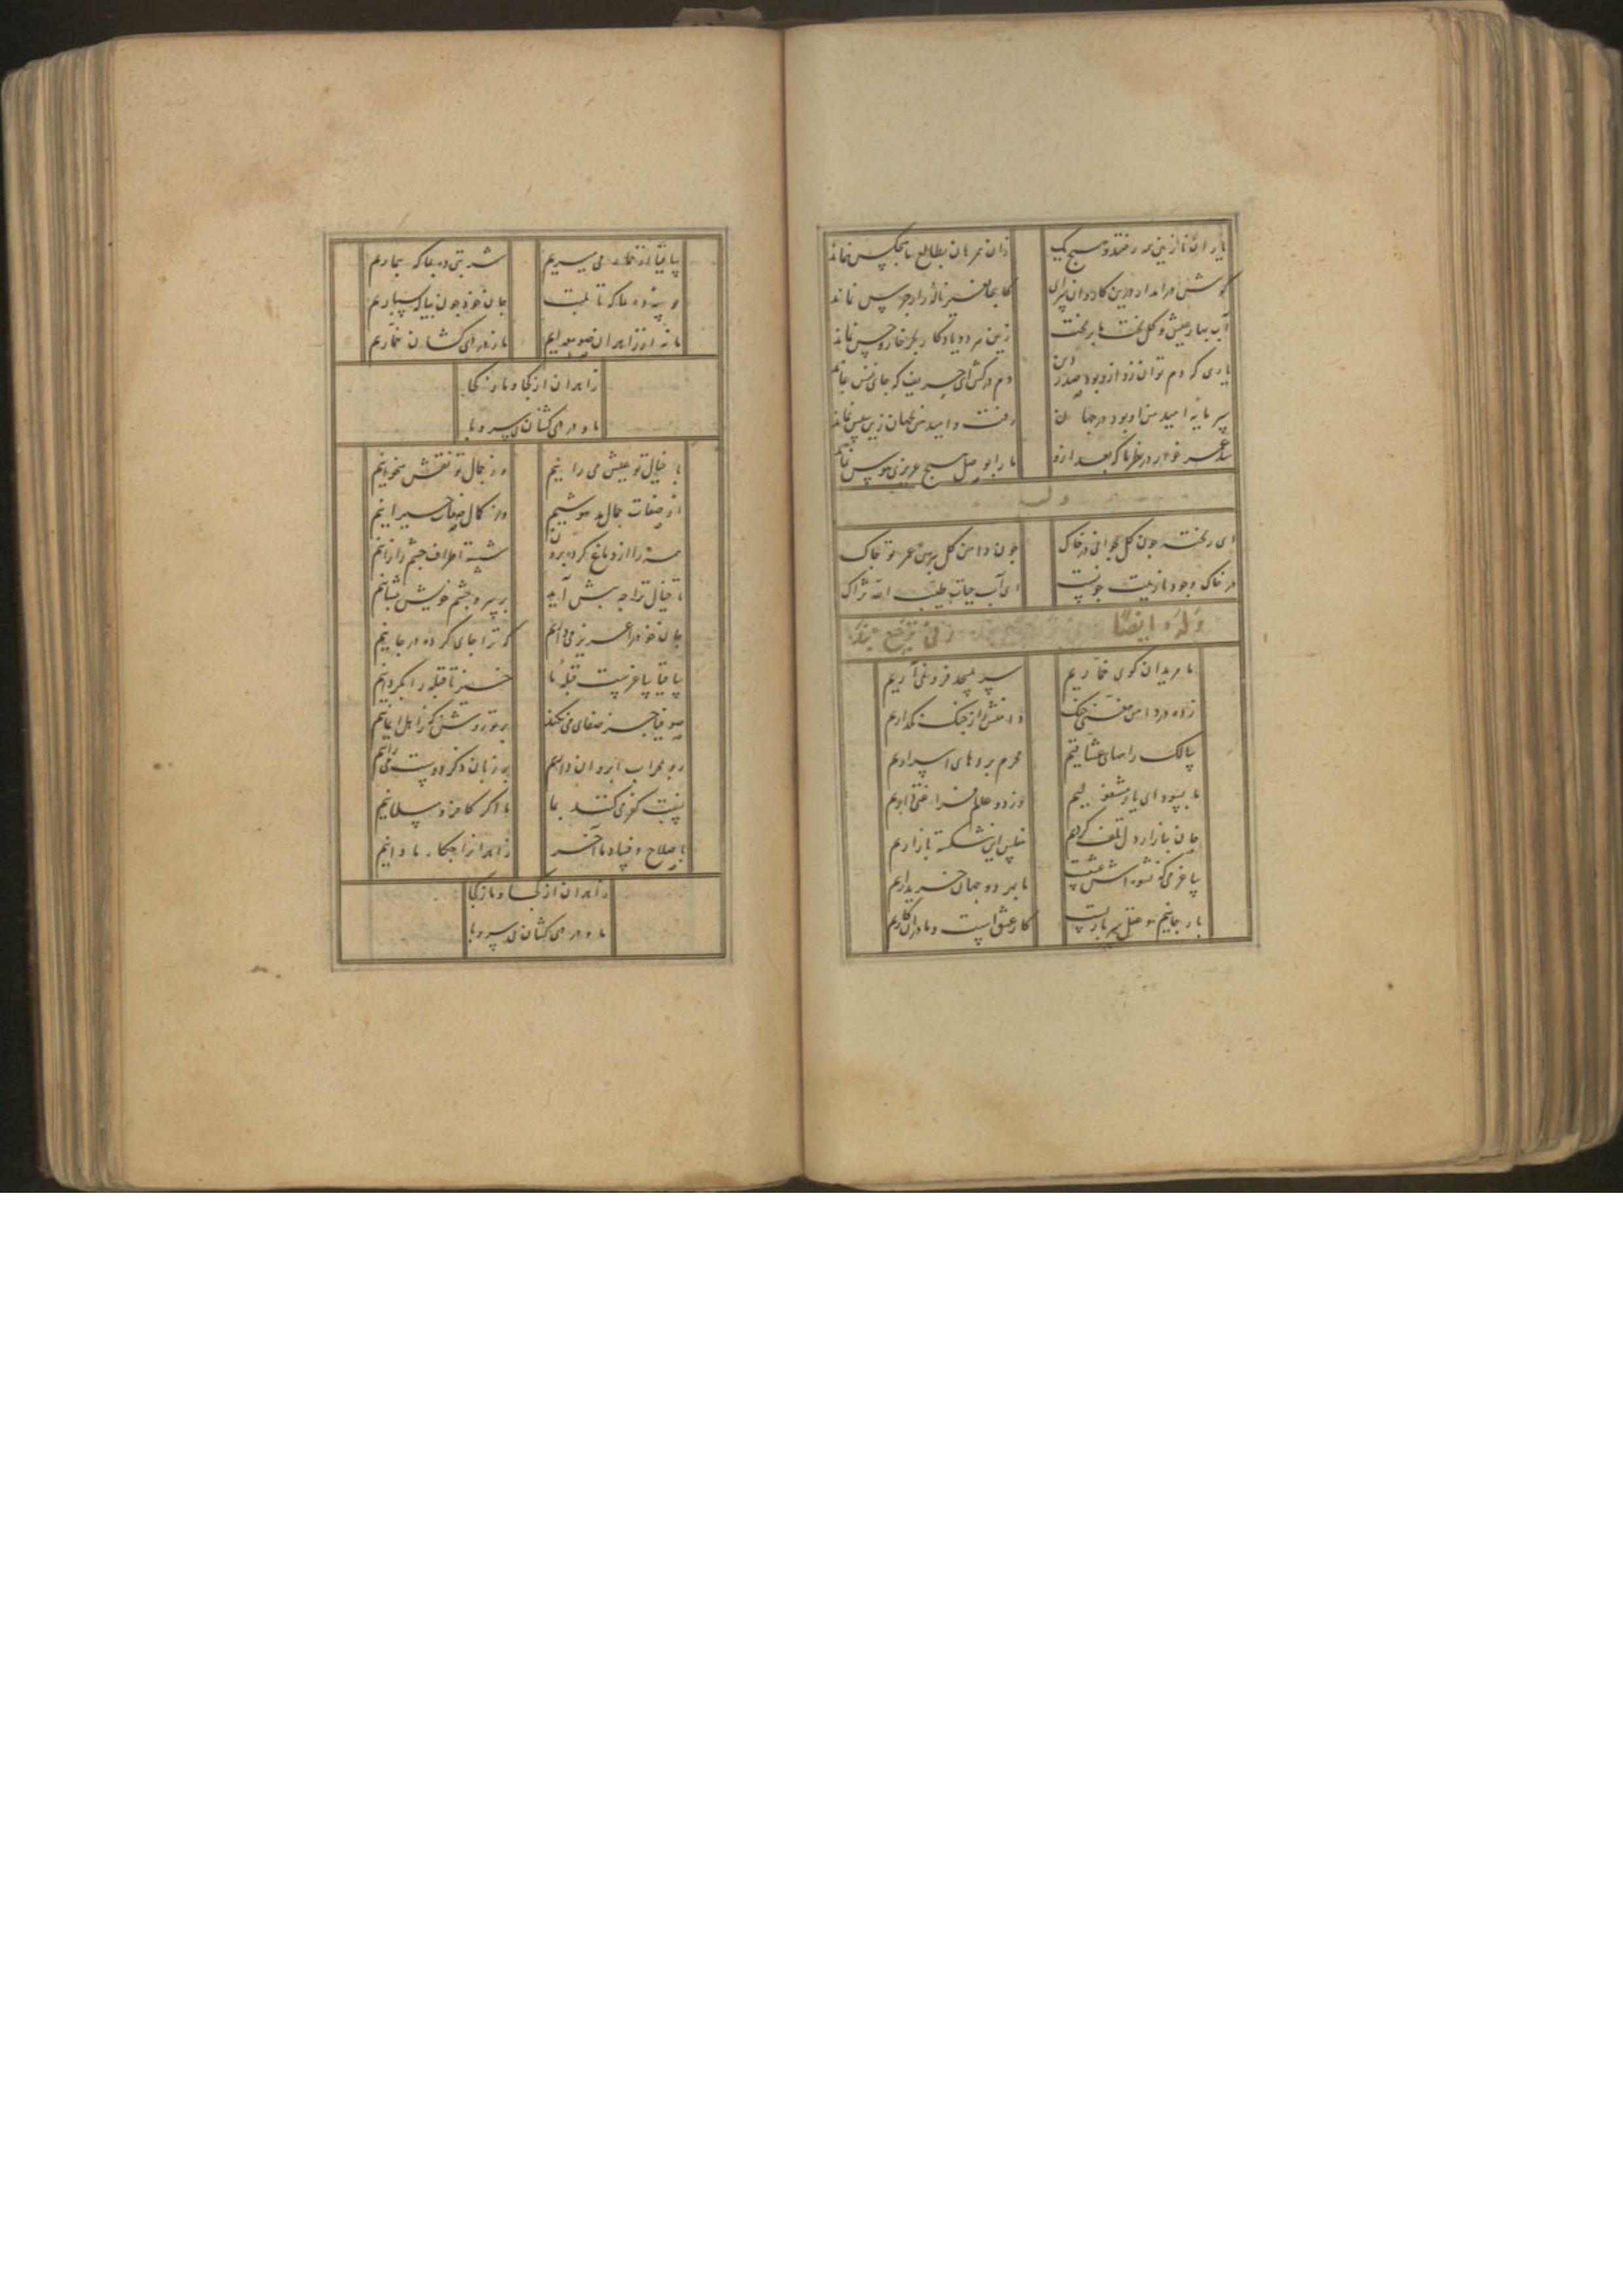 یاران نازنین همه رفتند و هیچ یک زان همرهان بطالع ما هیچکس نماند
کوش دراندار درین کاروان سرای کانجا بغیر ناله زار جرس نماند
آب بهار عیش و کل بخت ما بریخت زین هر دو یادکار بجز خار و خس نماند
یاری که دم توان زد ازو بود صدر دین دم درکش ای حریف که جای نفس نماند
سرمایه امید من او بود در جهان رفت و امید من بجهان زین سپس نماند
شد عمر خوار در نظر ما که بعد ازو ما را بوصل هیچ عزیزی هوس نماند
وله
ای ریخته چون کل جوانی در خاک چون دامن کل پیرهن عمر تو چاک
در خاک وجود نازنینت چونست ای آب حیات طیب الله ثراک
وله ایضا فی ترجیع بند
ما مریدان کوی خماریم سر بمسجد فرو نمی آریم
زده در دامن مغنی چنک دامنش را ز چنک نکذاریم
سالک راههای عشاقیم محرم پردهای اسراریم
ما بسودای یار مشغولیم وز دو عالم فراغتی داریم
جان ببازار دل تلف کردیم مفلس این شکسته بازاریم
ساغر می که نشوه اش عشقست ما بهر دو جهان خریداریم
بار جانیم و عقل سربارست کار عشق است و ما در آن کاریم
ساقیا از خمار می میریم شربتی ده بما که بیماریم
و بوسه ده بما که تا بلبت جان خود چون پیاله بسپاریم
ما نه از زاهدان صومعه ایم ما ز دردی کشان خماریم
زاهدان از کجا و ما ز کجا
ما و دردی کشان بی سر و پا
با خیال تو عیش می رانیم وز جمال تو نقش میخوانیم
از صفات جمال مدهوشیم در کمال صفات حیرانیم
همه را از دماغ کرده برون شسته اطراف چشم را زانیم
تا خیال ترا چه پیش آید بر سر و چشم خویش بنشانیم
جان خود را عزیز می داریم که ترا جای کرده در جانیم
ساقیا ساغرست قبله ما خیز تا قبله را بکردانیم
صوفیا جز صفای می نکند بر تو روشن که ز اهل ایمانیم
رو بمحراب ابروان داریم بر زبان ذکر دوست می رانیم
نسبت کفر می کنند بما ما اکر کافر و مسلمانیم
با صلاح و فساد ما آخر زاهدان را چکار ما دانیم
زاهدان از کجا و ما ز کجا
ما و دردی کشان بی سر و پا